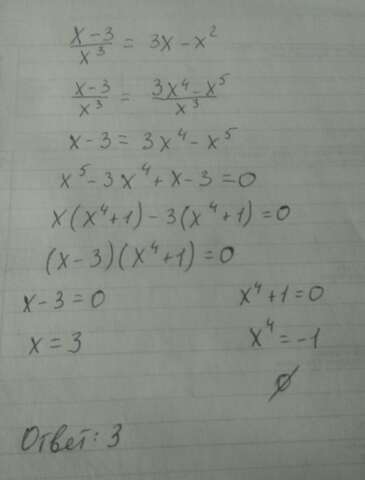 (x-3)/x³ = 3x-x²
(x-3)/x³ = (3x⁴-x⁵)/x³
x-3 = 3x⁴-x⁵
x⁵-3x⁴+x-3=0
x(x⁴+1)-3(x⁴+1)=0
(x-3)(x⁴+1)=0
x-3=0 x⁴+1=0
x=3 x⁴=-1
∅
Ответ: 3